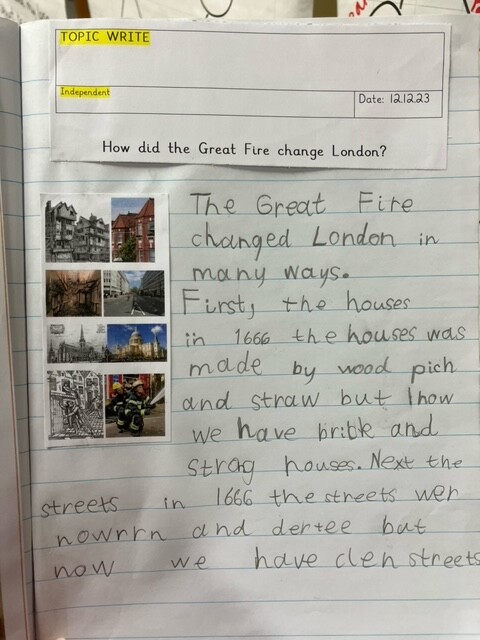 TOPIC WRITE
Independent
Date: 12.12.23
How did the Great Fire change London?
The Great Fire
changed London in
many ways.
First, the houses
in 1666 the houses was
made by wood pich
and straw but now
we have and
strog houses. Next the
streets in 1666 the streets wer
and dertee but
now we have clen streets